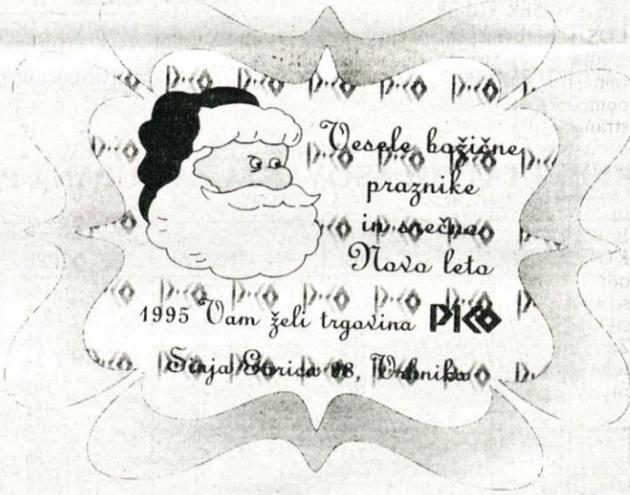 Vesele božične
praznike
in srečno
Novo leto
1995 Vam želi trgovina PIKO
Sinja Gorica Vrhnika